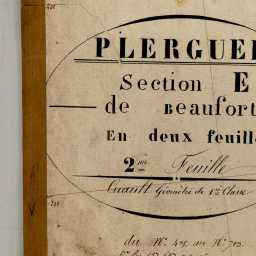 PLERGUE
Section E
de Beaufort
En deux feuill
2me Feuille
Géomètre de 1re Classe
du No. au No.